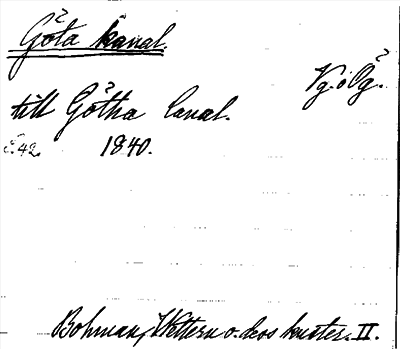 Göta kanal.
Vg. o Ög.
till Götha Canal.
s. 42. 1840.
Bohman, Wettern o. dess kuster. II.